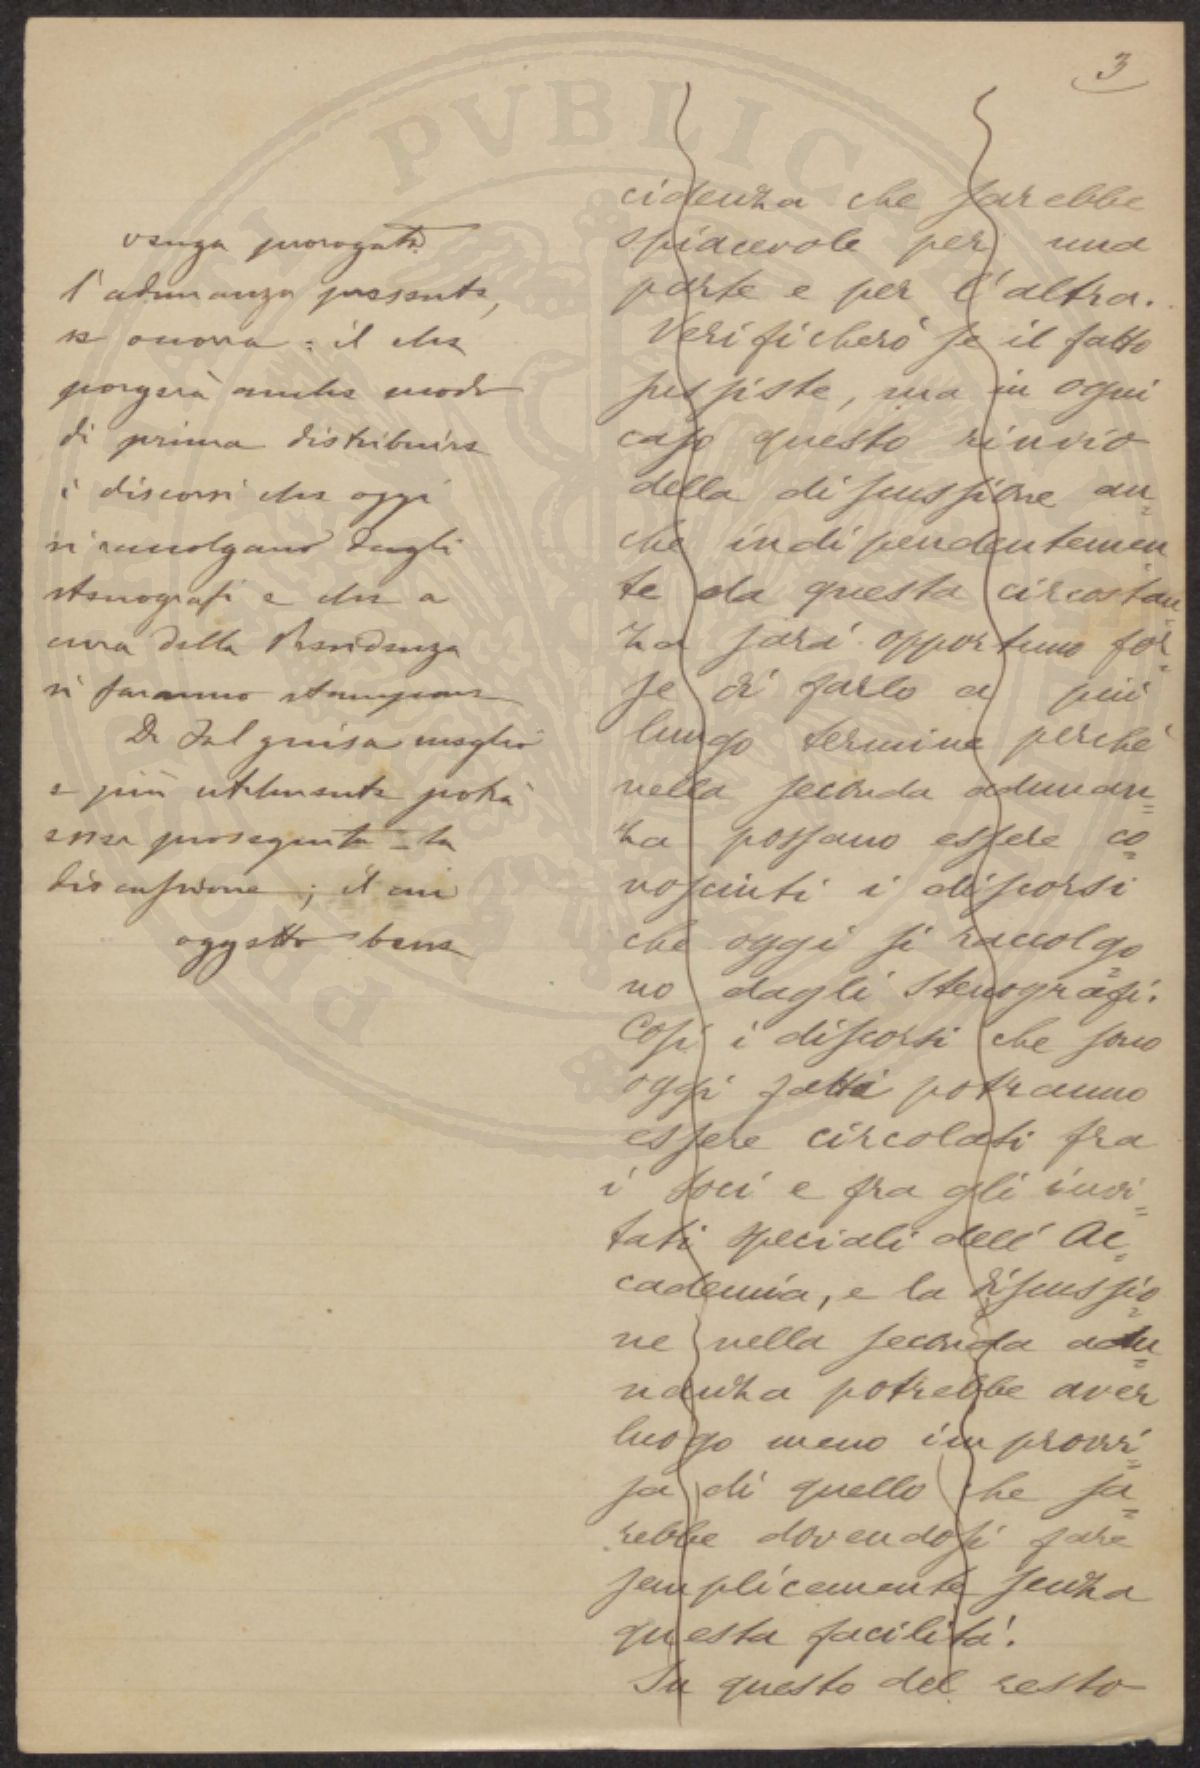 3
venga prorogata
l'adunanza presente,
se occorra: il che
porgerà anche modo
di prima distribuire
i discorsi che oggi
si raccolgano dagli
stenografi e che a
cura della Presidenza
si faranno stampare
Di tal guisa meglio
e più utilmente potrà
esser proseguita la
discussione; il cui
oggetto bene
cidenza che sarebbe
spiacevole per una
parte e per l'altra.
Verificherò se il fatto
sussiste, ma in ogni
caso questo rinvio
della discussione an=
che indipendentemen=
te da questa circostan=
za sarà opportuno for=
se di farlo a più
lungo termine perché
nella seconda adunan=
za possano essere co=
nosciuti i discorsi
che oggi si raccolgo=
no dagli stenografi.
Così i discorsi che sono
oggi fatti potranno
essere circolati fra
i soci e fra gli invi=
tati speciali dell'Ac=
cademia, e la discussio=
ne nella seconda adu=
nanza potrebbe aver
luogo meno improvvi=
sa di quello che sa=
rebbe dovendosi fare
semplicemente senza
questa facilità.
Su questo del resto
PVBLICA